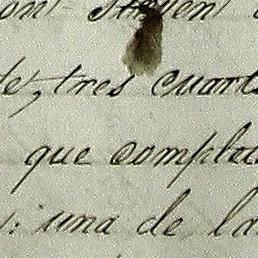 de, tres cuart
que complet
una de la